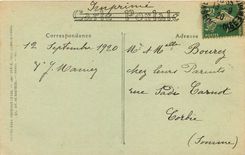 Imprimé
Carte Postale
Correspondance
Adresse
12 Septembre 1920
Mr & Melle Bourez
chez leurs Parents
rue Sadi Carnot
Corbie
(Somme)